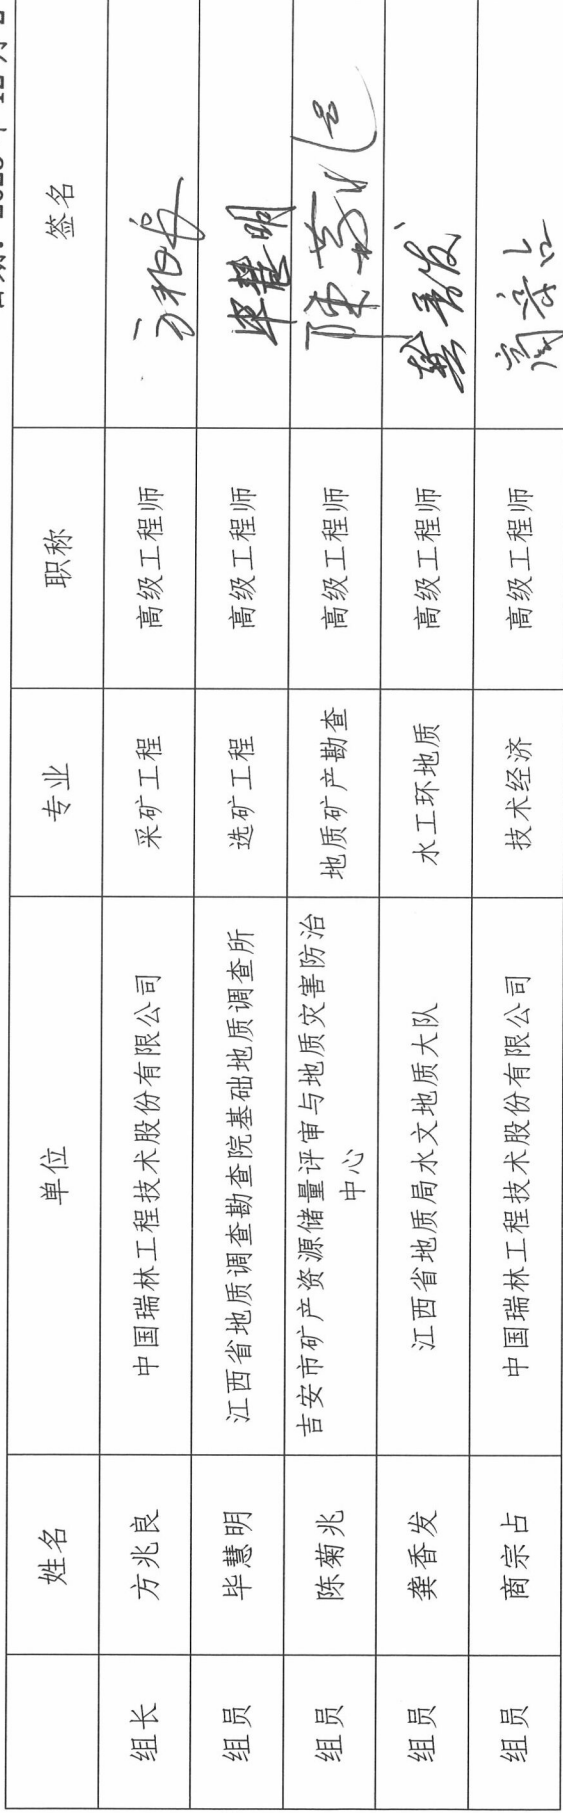 姓名 单位 专业 职称 签名
组长 方兆良 中国瑞林工程技术股份有限公司 采矿工程 高级工程师
组员 毕慧明 江西省地质调查勘查院基础地质调查所 选矿工程 高级工程师 毕慧明
组员 陈菊兆 吉安市矿产资源储量评审与地质灾害防治
中心 地质矿产勘查 高级工程师
组员 龚香发 江西省地质局水文地质大队 水工环地质 高级工程师
组员 商宗占 中国瑞林工程技术股份有限公司 技术经济 高级工程师